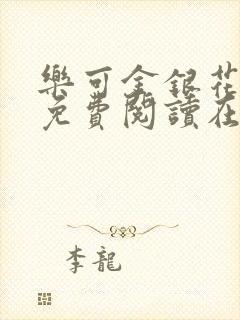 樂可金銀花
免費閱讀在
李龍